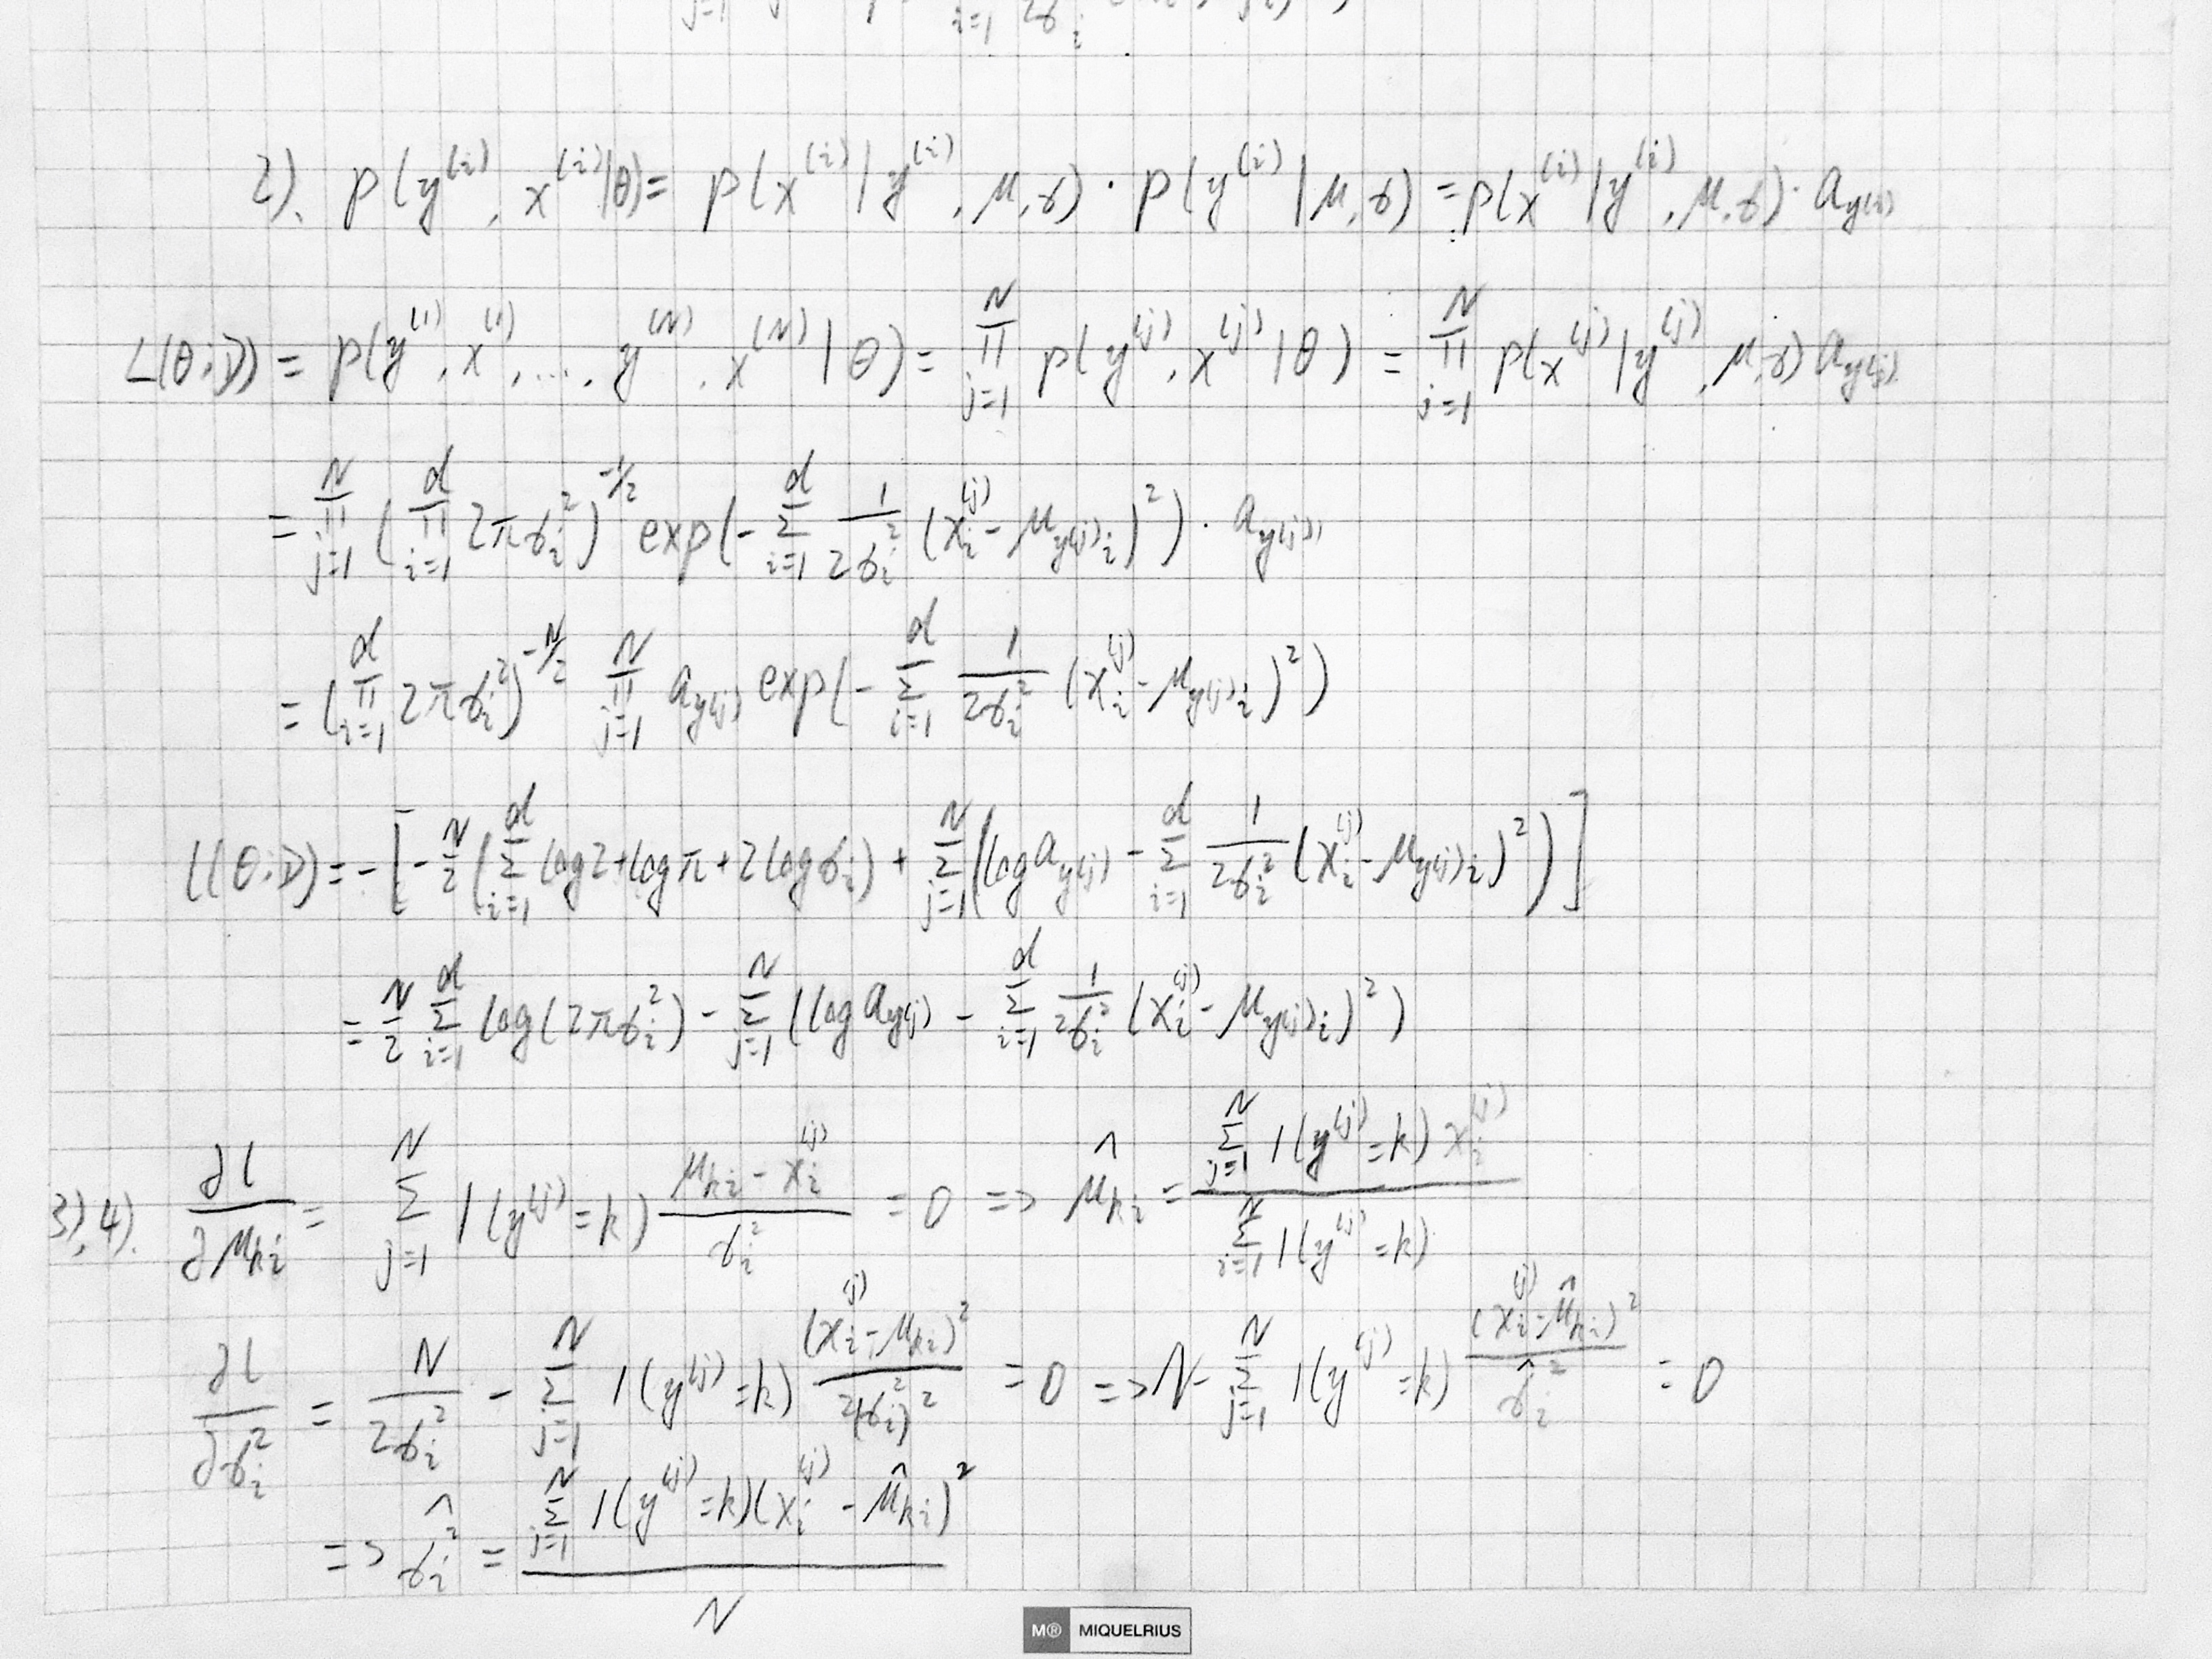 j=1 i=1 2σ_i
2). p(y^(i), x^(i)|θ) = p(x^(i)|y^(i), μ,σ) · p(y^(i)|μ,σ) = p(x^(i)|y^(i), μ,σ) · a_y(i)
L(θ;D) = p(y^(1), x^(1), ..., y^(N), x^(N)|θ) = ∏_{j=1}^N p(y^(j), x^(j)|θ) = ∏_{j=1}^N p(x^(j)|y^(j), μ,σ) a_y(j)
= ∏_{j=1}^N (∏_{i=1}^d 2πσ_i^2)^{-1/2} exp(-∑_{i=1}^d 1/(2σ_i^2) (x_i^(j) - μ_{y(j)i})^2) · a_y(j)
= (∏_{i=1}^d 2πσ_i^2)^{-N/2} ∏_{j=1}^N a_y(j) exp(-∑_{i=1}^d 1/(2σ_i^2) (x_i^(j) - μ_{y(j)i})^2)
l(θ;D) = -[-N/2 (∑_{i=1}^d log2+logπ+2logσ_i) + ∑_{j=1}^N (log a_y(j) - ∑_{i=1}^d 1/(2σ_i^2) (x_i^(j) - μ_{y(j)i})^2)]
= N/2 ∑_{i=1}^d log(2πσ_i^2) - ∑_{j=1}^N (log a_y(j) - ∑_{i=1}^d 1/(2σ_i^2) (x_i^(j) - μ_{y(j)i})^2)
3), 4). ∂l/∂μ_ki = ∑_{j=1}^N 1(y^(j)=k) (μ_ki - x_i^(j))/σ_i^2 = 0 => μ̂_ki = ∑_{j=1}^N 1(y^(j)=k) x_i^(j) / ∑_{i=1}^N 1(y^(j)=k)
∂l/∂σ_i^2 = N/(2σ_i^2) - ∑_{j=1}^N 1(y^(j)=k) (x_i^(j) - μ_ki)^2/(2(σ_i^2)^2) = 0 => N - ∑_{j=1}^N 1(y^(j)=k) (x_i^(j) - μ̂_ki)^2/σ̂_i^2 = 0
=> σ̂_i^2 = ∑_{j=1}^N 1(y^(j)=k)(x_i^(j) - μ̂_ki)^2 / N
M® MIQUELRIUS